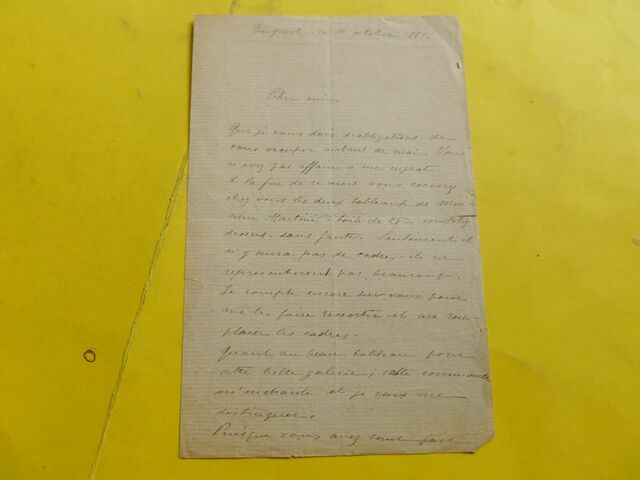 ce 10 octobre 1881.
Cher amis
Que je vous dois d'obligations de
vous occuper autant de moi. Vous
n'avez pas affaire à un ingrat.
A la fin de ce mois vous recevrez
chez vous les deux tableaux de Mon-
sieur Martini - toile de 25 - comptez
dessus - sans faute. Seulement il
n'y aura pas de cadre, ils ne
représenteront pas beaucoup.
Je compte encore sur vous pour
me les faire ressortir et me rem-
placer les cadres.
Quant au beau tableau pour
votre belle galerie, cette commande
m'enchante et je veux me
distinguer.
Puisque vous avez tant fait